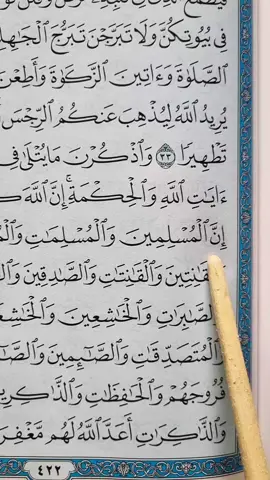 فِي بُيُوتِكُنَّ وَلَا تَبَرَّجْنَ تَبَرُّجَ ٱلْجَٰهِلِ
ٱلصَّلَوٰةَ وَءَاتِينَ ٱلزَّكَوٰةَ وَأَطِعْنَ
يُرِيدُ ٱللَّهُ لِيُذْهِبَ عَنكُمُ ٱلرِّجْسَ
تَطْهِيرًا ٣٣ وَٱذْكُرْنَ مَا يُتْلَىٰ فِي
ءَايَٰتِ ٱللَّهِ وَٱلْحِكْمَةِ ۚ إِنَّ ٱللَّهَ
إِنَّ ٱلْمُسْلِمِينَ وَٱلْمُسْلِمَٰتِ
وَٱلْقَٰنِتِينَ وَٱلْقَٰنِتَٰتِ وَٱلصَّٰدِقِينَ
وَٱلصَّٰبِرَٰتِ وَٱلْخَٰشِعِينَ
وَٱلْمُتَصَدِّقَٰتِ وَٱلصَّٰٓئِمِينَ
فُرُوجَهُمْ وَٱلْحَٰفِظَٰتِ وَٱلذَّٰكِرِي
وَٱلذَّٰكِرَٰتِ أَعَدَّ ٱللَّهُ لَهُم مَّغْفِرَ
٤٢٢